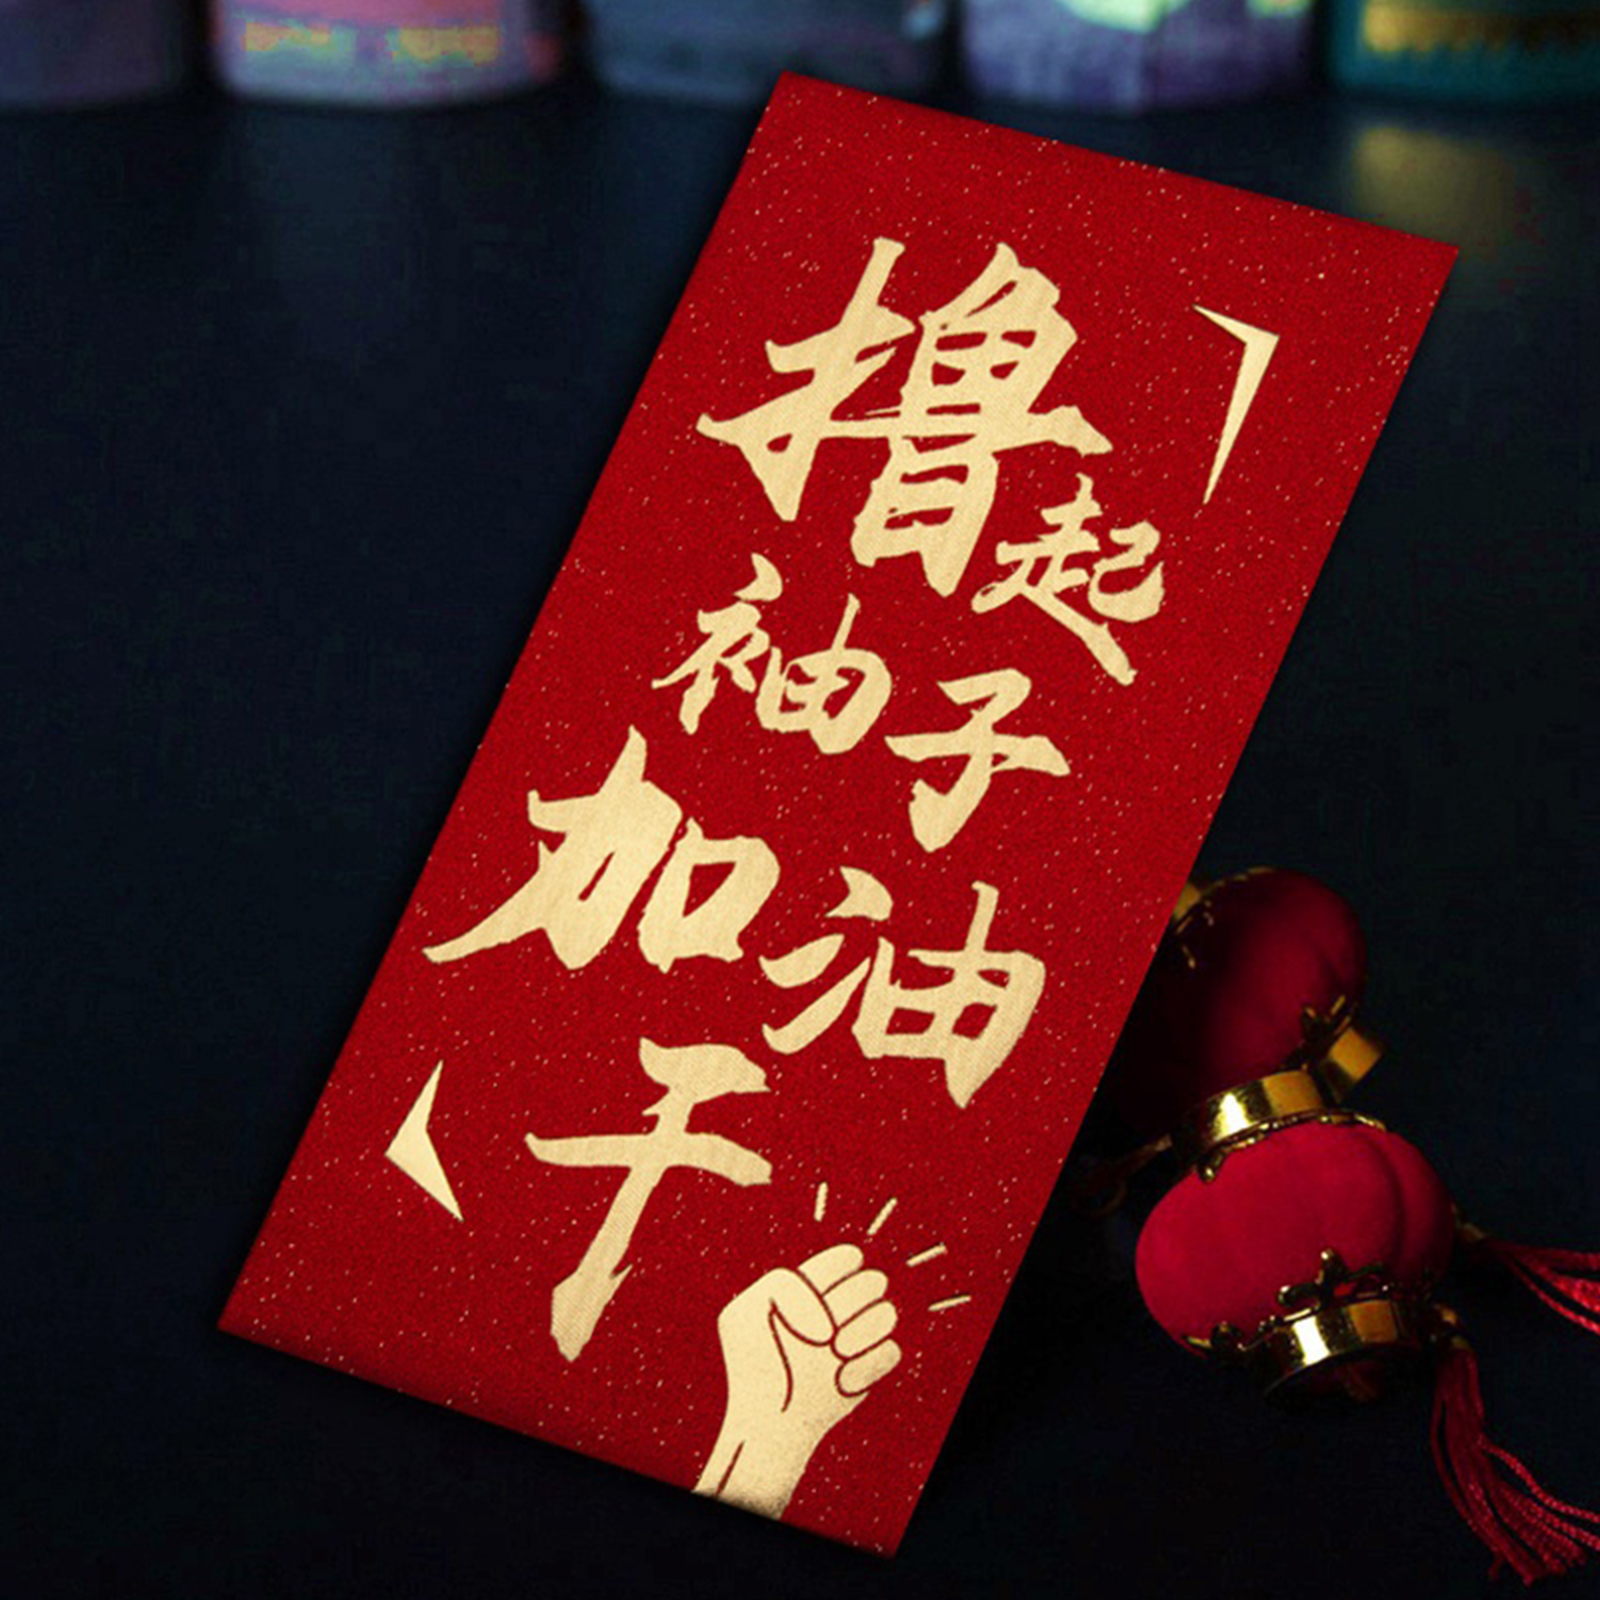 撸起
袖子
加油
干